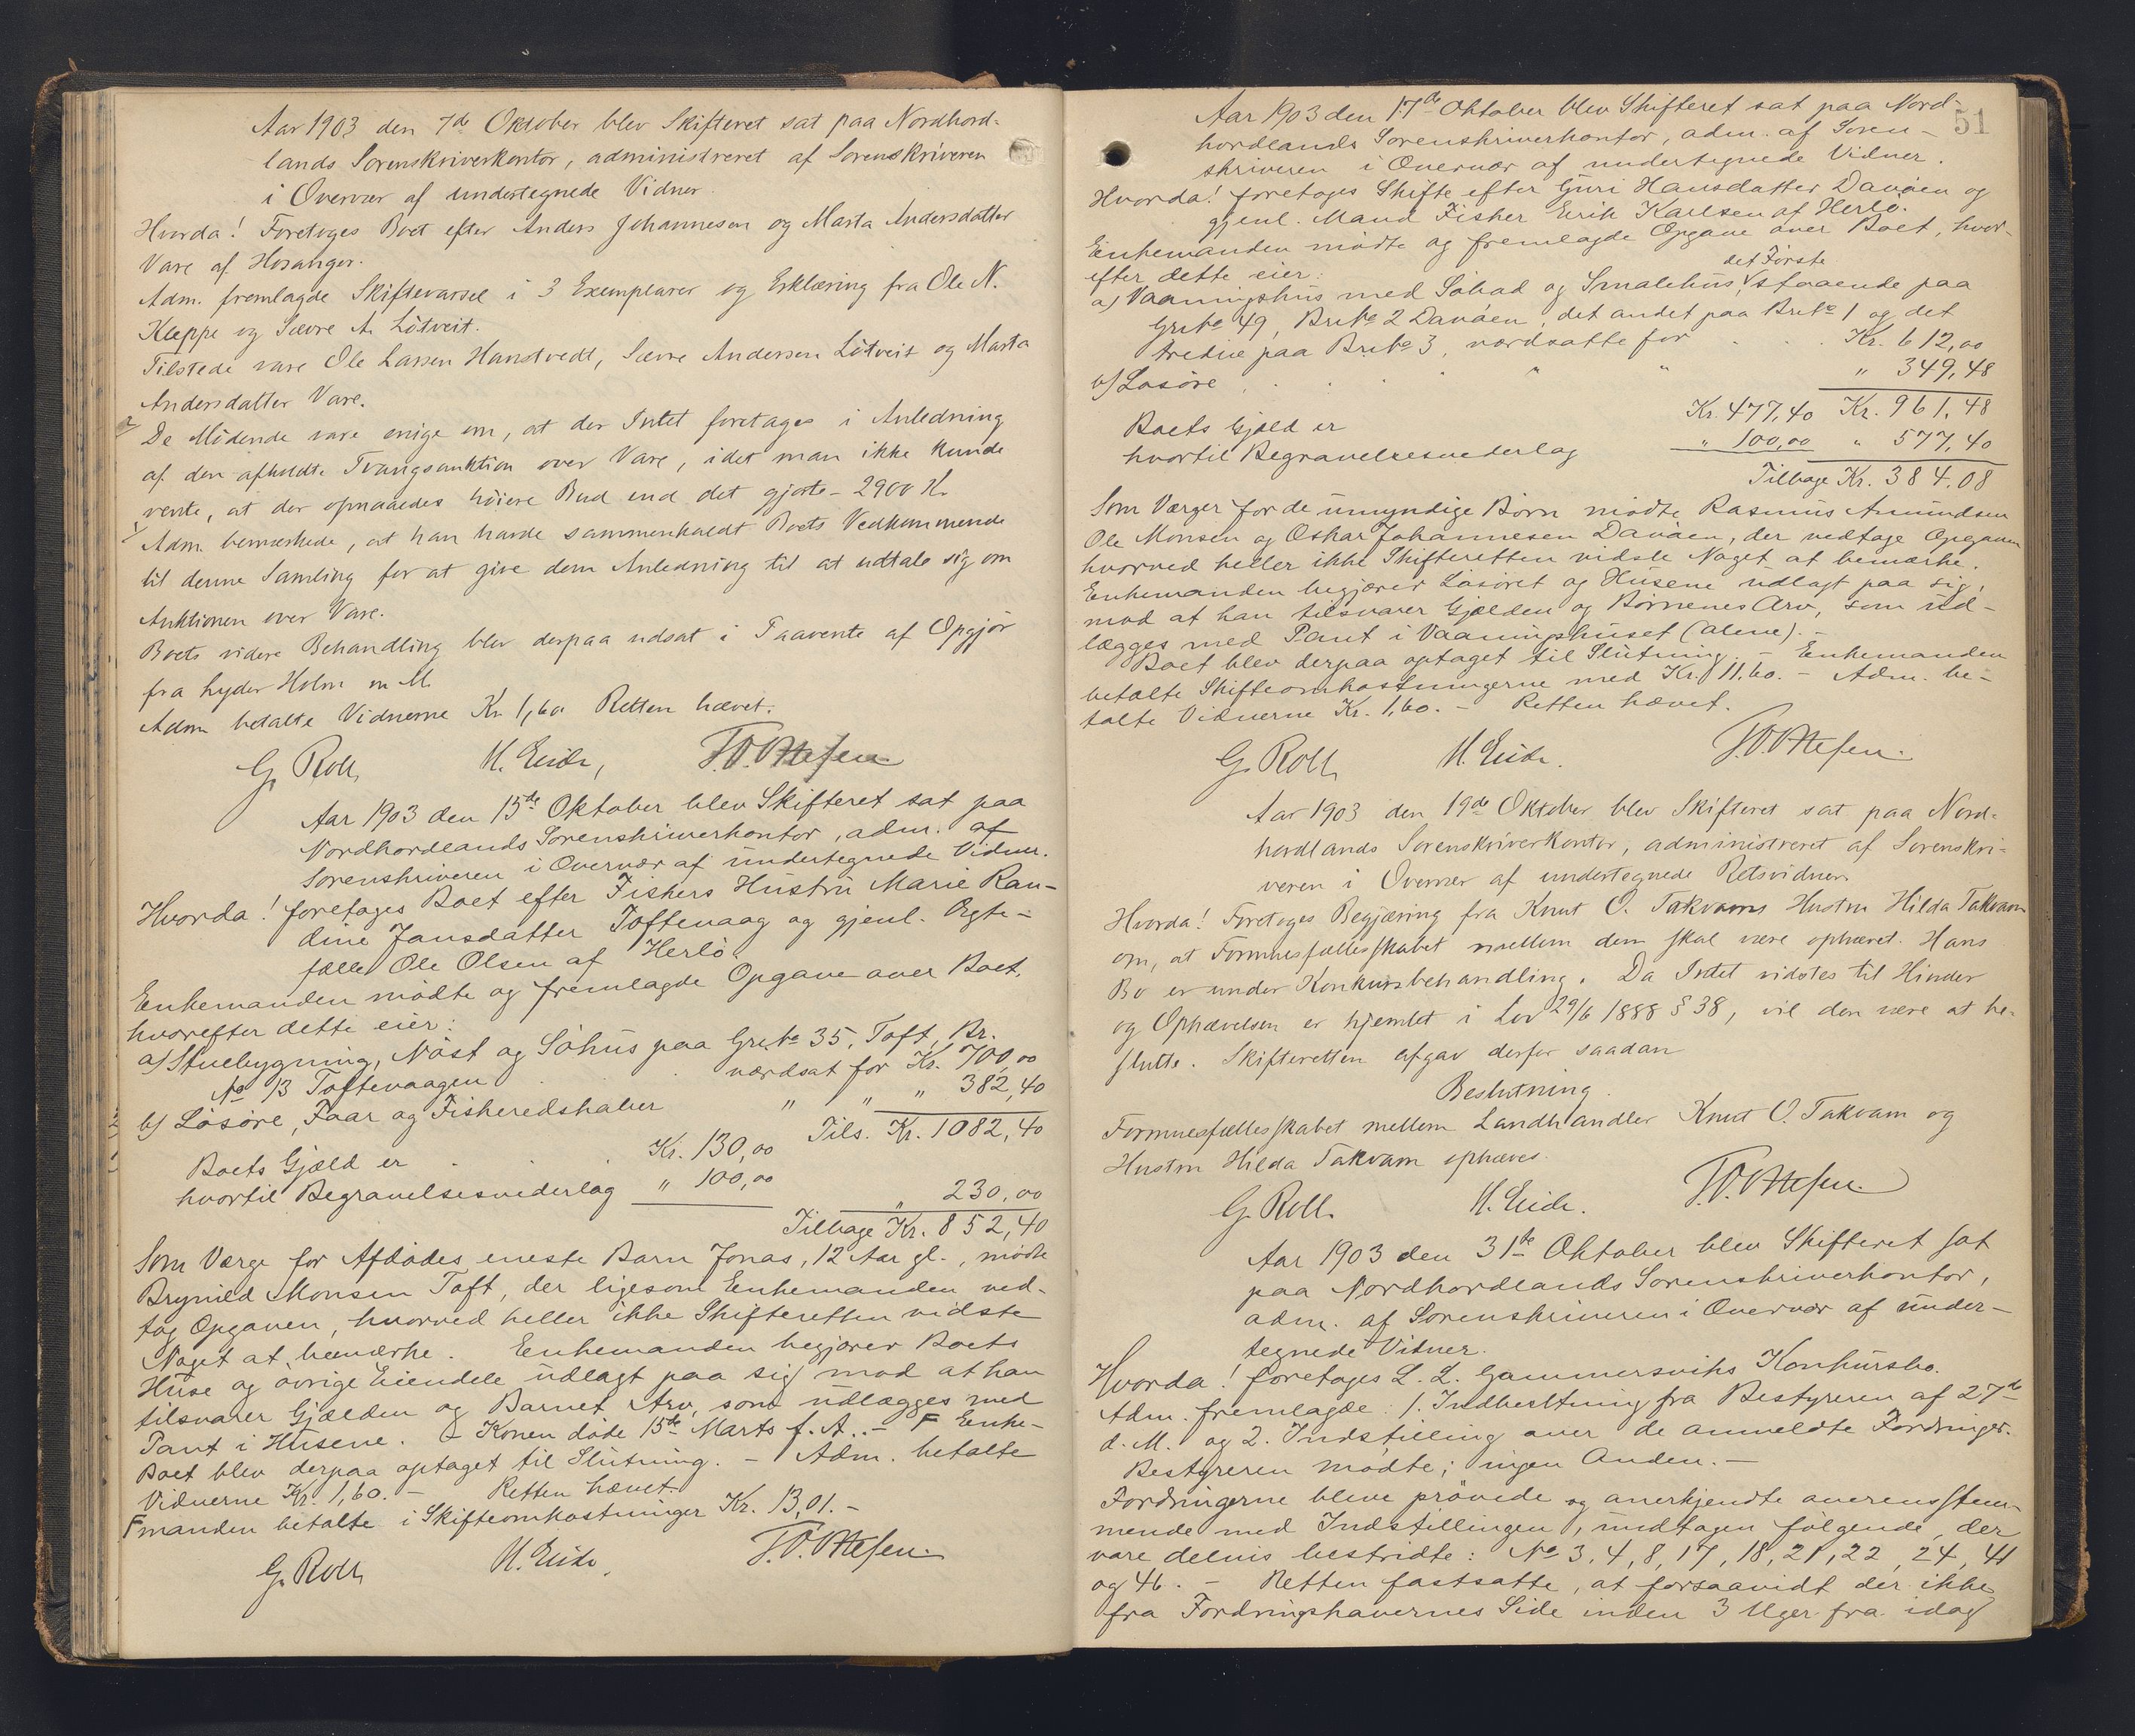 Aar 1903 den 7de Oktober blev Skifteret sat paa Nordhord-
lands Sorenskriverkontor, administreret af Sorenskriveren
i Overvær af undertegnede Vidner.
Hvorda! Foretoges Boet efter Anders Johannesen og Marta Andersdatter
Vare af Hosanger.
Adm. fremlagde Skiftevarsel i 3 Exemplarer og Erklæring fra Ole N.
Kleppe og Sævre A. Lötveit.
Tilstede vare Ole Larsen Hanstvedt, Sævre Andersen Lötveit og Marta
Andersdatter Vare.
De Mödende vare enige om, at der Intet foretages i Anledning
af den afholdte Tvangsauktion over Vare, idet man ikke kunde
vente, at der opnaaedes höiere Bud end det gjorte - 2900 Kr.
Adm. bemærkede, at han havde sammenkaldt Boets Vedkommende
til denne Samling for at give dem Anledning til at udtale sig om
Auktionen over Vare.
Boets videre Behandling blev derpaa udsat i Paavente af Opgjör
fra Lyder Holm m M.
Adm betalte Vidnerne Kr 1,60 Retten hævet.
G. Roll, M. Eide, T.O. Ottesen
Aar 1903 den 15de Oktober blev Skifteret sat paa
Nordhordlands Sorenskriverkontor, adm. af
Sorenskriveren i Overvær af undertegnede Vidner.
Hvorda! foretoges Boet efter Fiskers Hustru Marie Ran-
dine Jansdatter Toftevaag og gjenl. Ægte-
fælle Ole Olsen af Herlö.
Enkemanden mödte og fremlagde Opgave over Boet,
hvorefter dette eier:
a) Stuebygning, Nöst og Söhus paa Gr.No 35, Toft, Br.
No 13 Toftevaagen . . værdsat for Kr. 700,00
b) Lösöre, Faar og Fiskeredskaber " " " 382,40
Tils. Kr. 1082,40
Boets Gjæld er . . . Kr. 130,00
hvortil Begravelsesvederlag " 100,00
" 230,00
Tilbage Kr. 852,40
Som Værge for Afdödes eneste Barn Jonas, 12 Aar gl., mödte
Brynild Monsen Toft, der ligesom Enkemanden ved-
tog Opgaven, hvorved heller ikke Skifteretten vidste
Noget at bemærke. Enkemanden begjærer Boets
Huse og övrige Eiendele udlagt paa sig mod at han
tilsvarer Gjælden og Barnet Arv, som udlægges med
Pant i Husene. - Konen döde 15de Marts f. A.. - F Enke-
Boet blev derpaa optaget til Slutning. - Adm. betalte
Vidnerne Kr. 1,60. - Retten hævet.
Fmanden betalte i Skifteomkostninger Kr. 13,01. -
G. Roll, M. Eide, T.O. Ottesen.
51
Aar 1903 den 17de Oktober blev Skifteret sat paa Nord-
hordlands Sorenskriverkontor, adm. af Soren-
skriveren i Overvær af undertegnede Vidner.
Hvorda! foretoges Skifte efter Guri Hansdatter Davöen og
gjenl. Mand Fisker Erik Karlsen af Herlö.
Enkemanden mödte og fremlagde Opgave over Boet, hvor-
efter dette eier: det Förste
a) Vaaningshus med Söbod og Smalehus, V staaende paa
Gr.No 49, Br.No 2 Davöen, det andet paa Br.No 1 og det
tredie paa Br.No 3, værdsatte for . . . Kr. 612,00
b) Lösöre . . . . " " " 349,48
Kr. 477,40 Kr. 961,48
Boets Gjæld er
hvortil Begravelsesvederlag " 100,00 " 577,40
Tilbage Kr. 384,08
Som Værger for de umyndige Börn mödte Rasmus Amundsen
Ole Monsen og Oskar Johannesen Davöen, der vedtoge Opgaven
hvorved heller ikke Skifteretten vidste Noget at bemærke.
Enkemanden begjærer Lösöret og Husene udlagt paa sig,
mod at han tilsvarer Gjælden og Börnenes Arv, som ud-
lægges med Pant i Vaaningshuset (alene). -
Boet blev derpaa optaget til Slutning. - Enkemanden
betalte Skifteomkostningerne med Kr. 11,60. - Adm. be-
talte Vidnerne Kr. 1,60. - Retten hævet.
G. Roll, M. Eide. T.O. Ottesen.
Aar 1903 den 19de Oktober blev Skifteret sat paa Nord-
hordlands Sorenskriverkontor, administreret af Sorenskri-
veren i Overvær af undertegnede Retsvidner.
Hvorda! Foretoges Begjæring fra Knut O. Takvams Hustru Hilda Takvam
om, at Formuesfællesskabet mellem dem skal være ophævet. Hans
Bo er under Konkursbehandling. Da Intet vidstes til Hinder
og Ophævelsen er hjemlet i Lov 29/6 1888 § 38, vil den være at be-
slutte. Skifteretten afgav derfor saadan
Beslutning.
Formuesfællesskabet mellem Landhandler Knut O. Takvam og
Hustru Hilda Takvam ophæves.
G. Roll. M. Eide. T.O. Ottesen.
Aar 1903 den 31te Oktober blev Skifteret sat
paa Nordhordlands Sorenskriverkontor,
adm. af Sorenskriveren i Overvær af under-
tegnede Vidner.
Hvorda! foretoges L. L. Gammersviks Konkursbo.
Adm. fremlagde: 1. Indberetning fra Bestyreren af 27de
d. M. og 2. Indstilling over de anmeldte Fordringer.
Bestyreren mödte; ingen Anden. -
Fordringerne bleve prövede og anerkjendte overensstem-
mende med Indstillingen, undtagen fölgende, der
vare delvis bestridte: No 3, 4, 8, 17, 18, 21, 22, 24, 41
og 46. - Retten fastsatte, at forsaavidt der ikke
fra Fordringshavernes Side inden 3 Uger fra idag